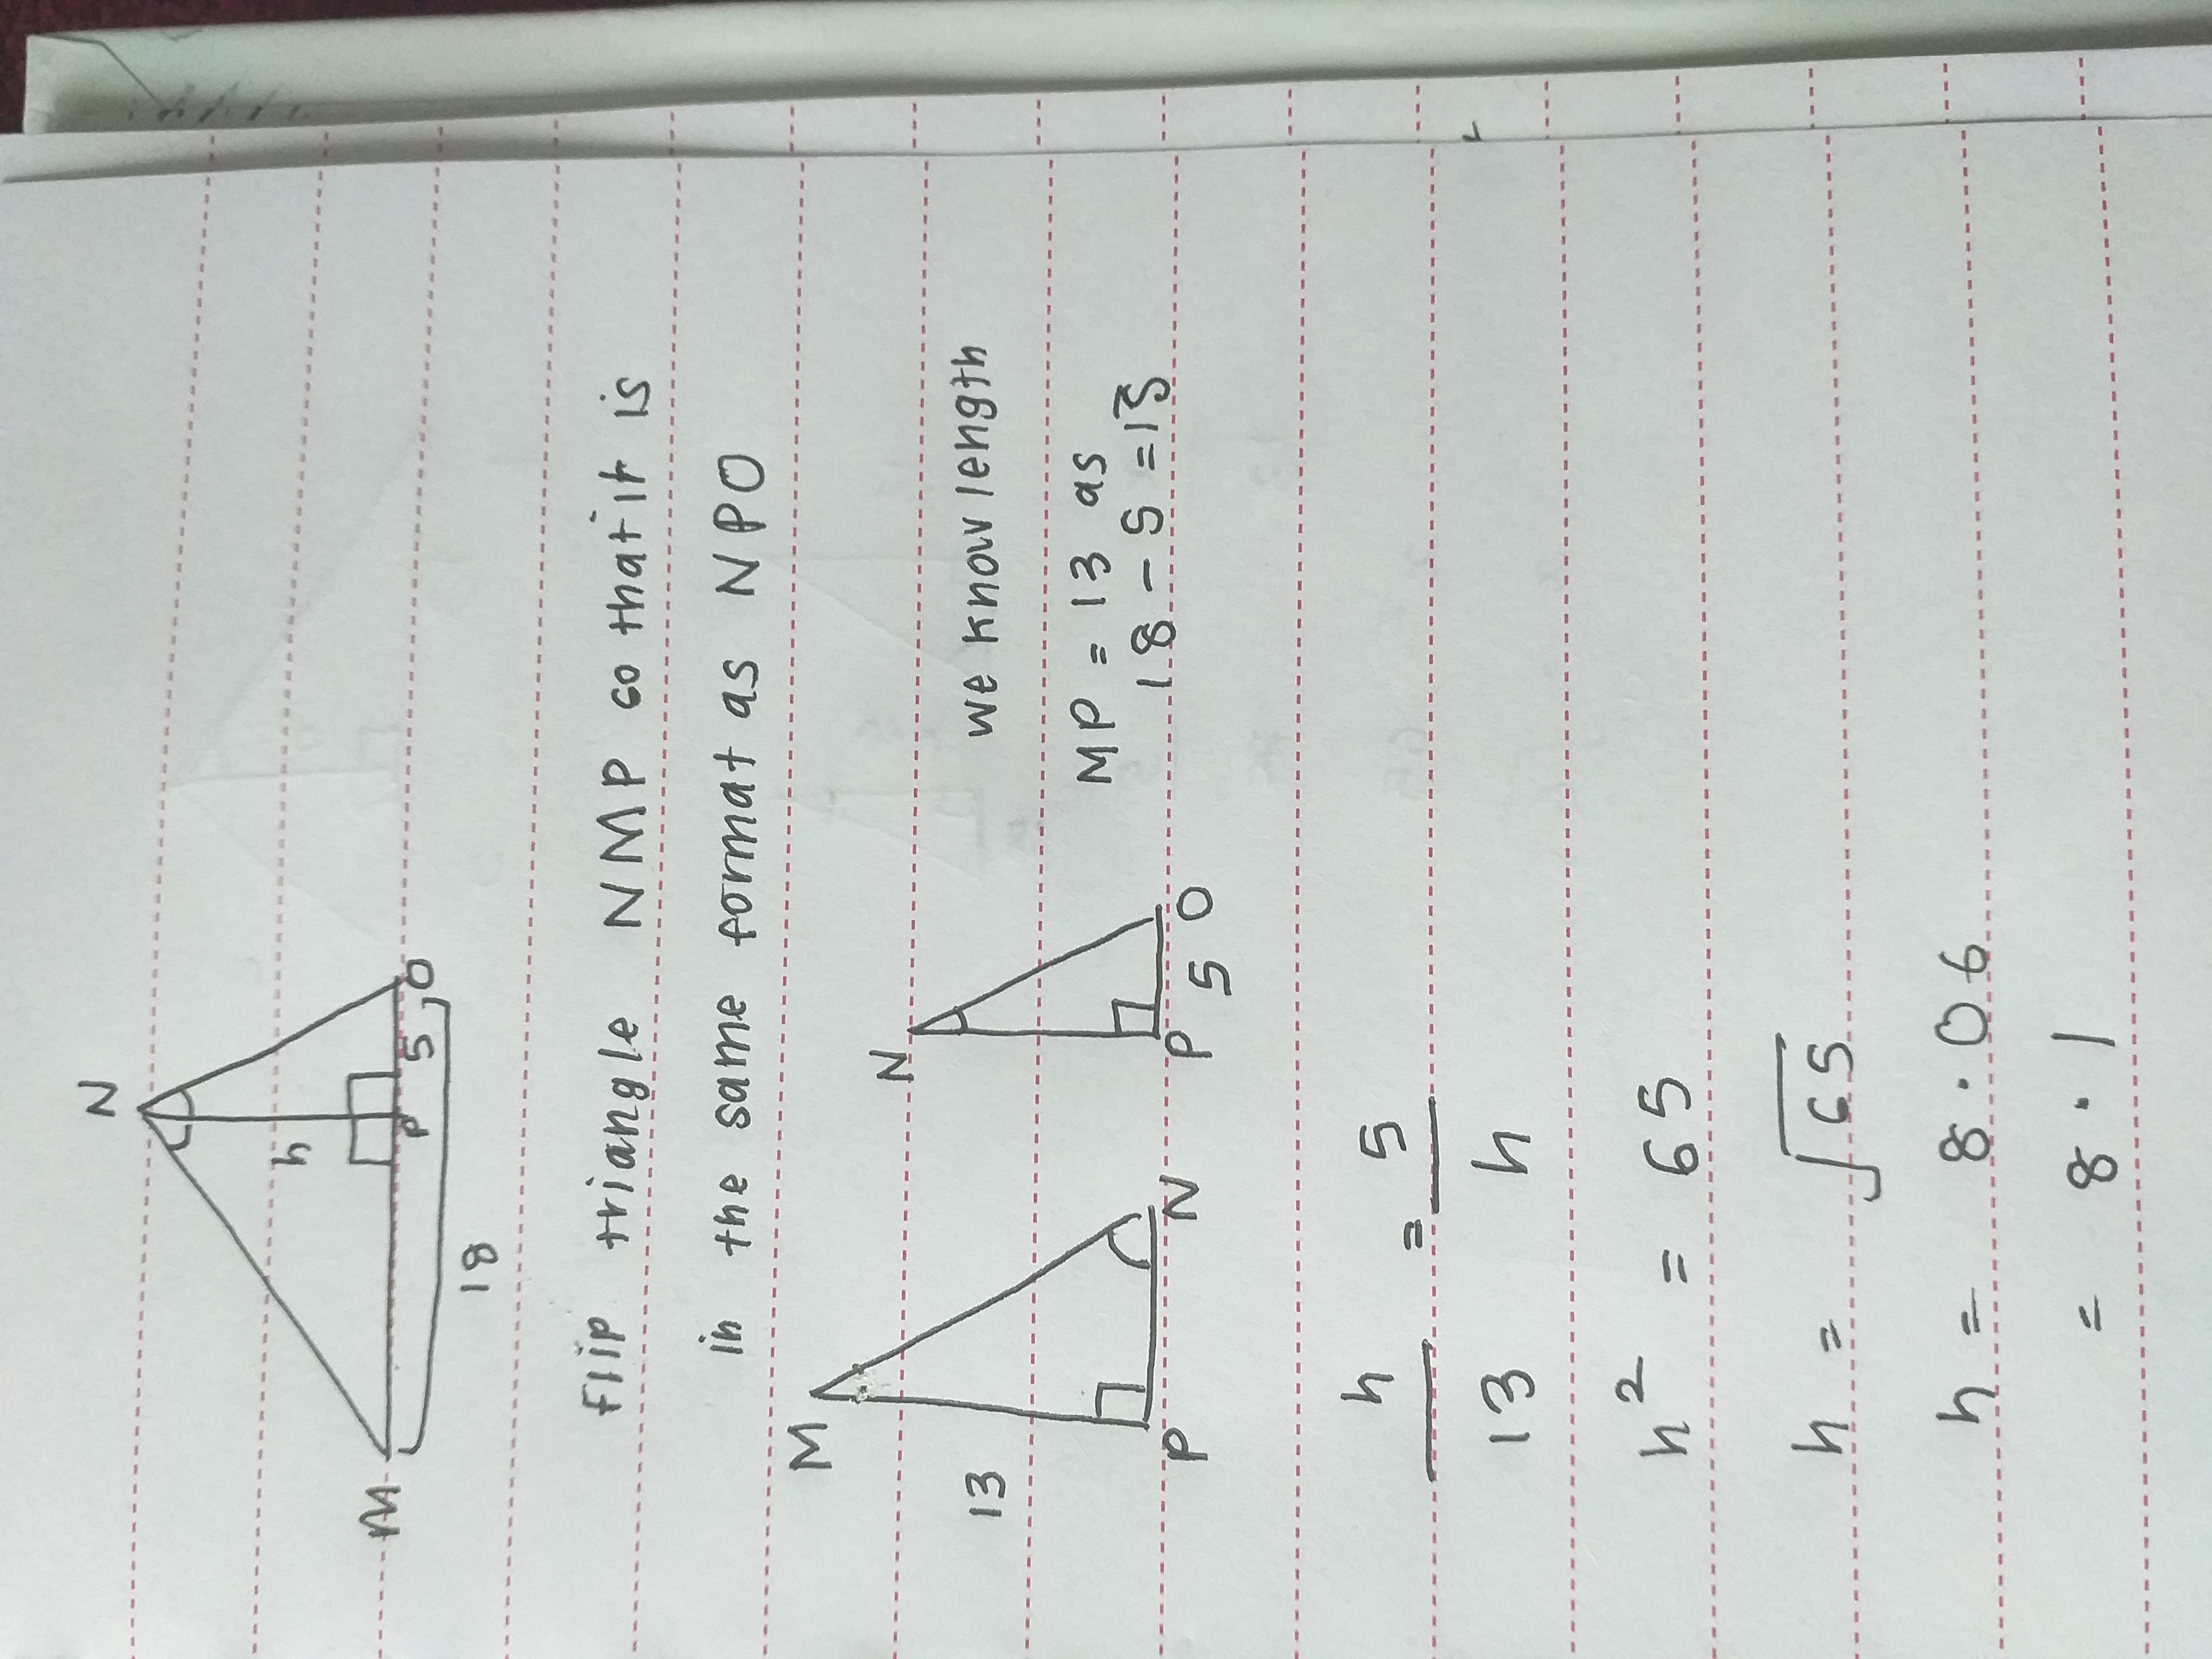 N
h
M P 5 O
18
Flip triangle NMP so that it is
in the same format as NPO
M N we know length
13 MP = 13 as
18 - 5 = 13
P N P 5 O
h/13 = 5/h
h² = 65
h = √65
h = 8.06
= 8.1